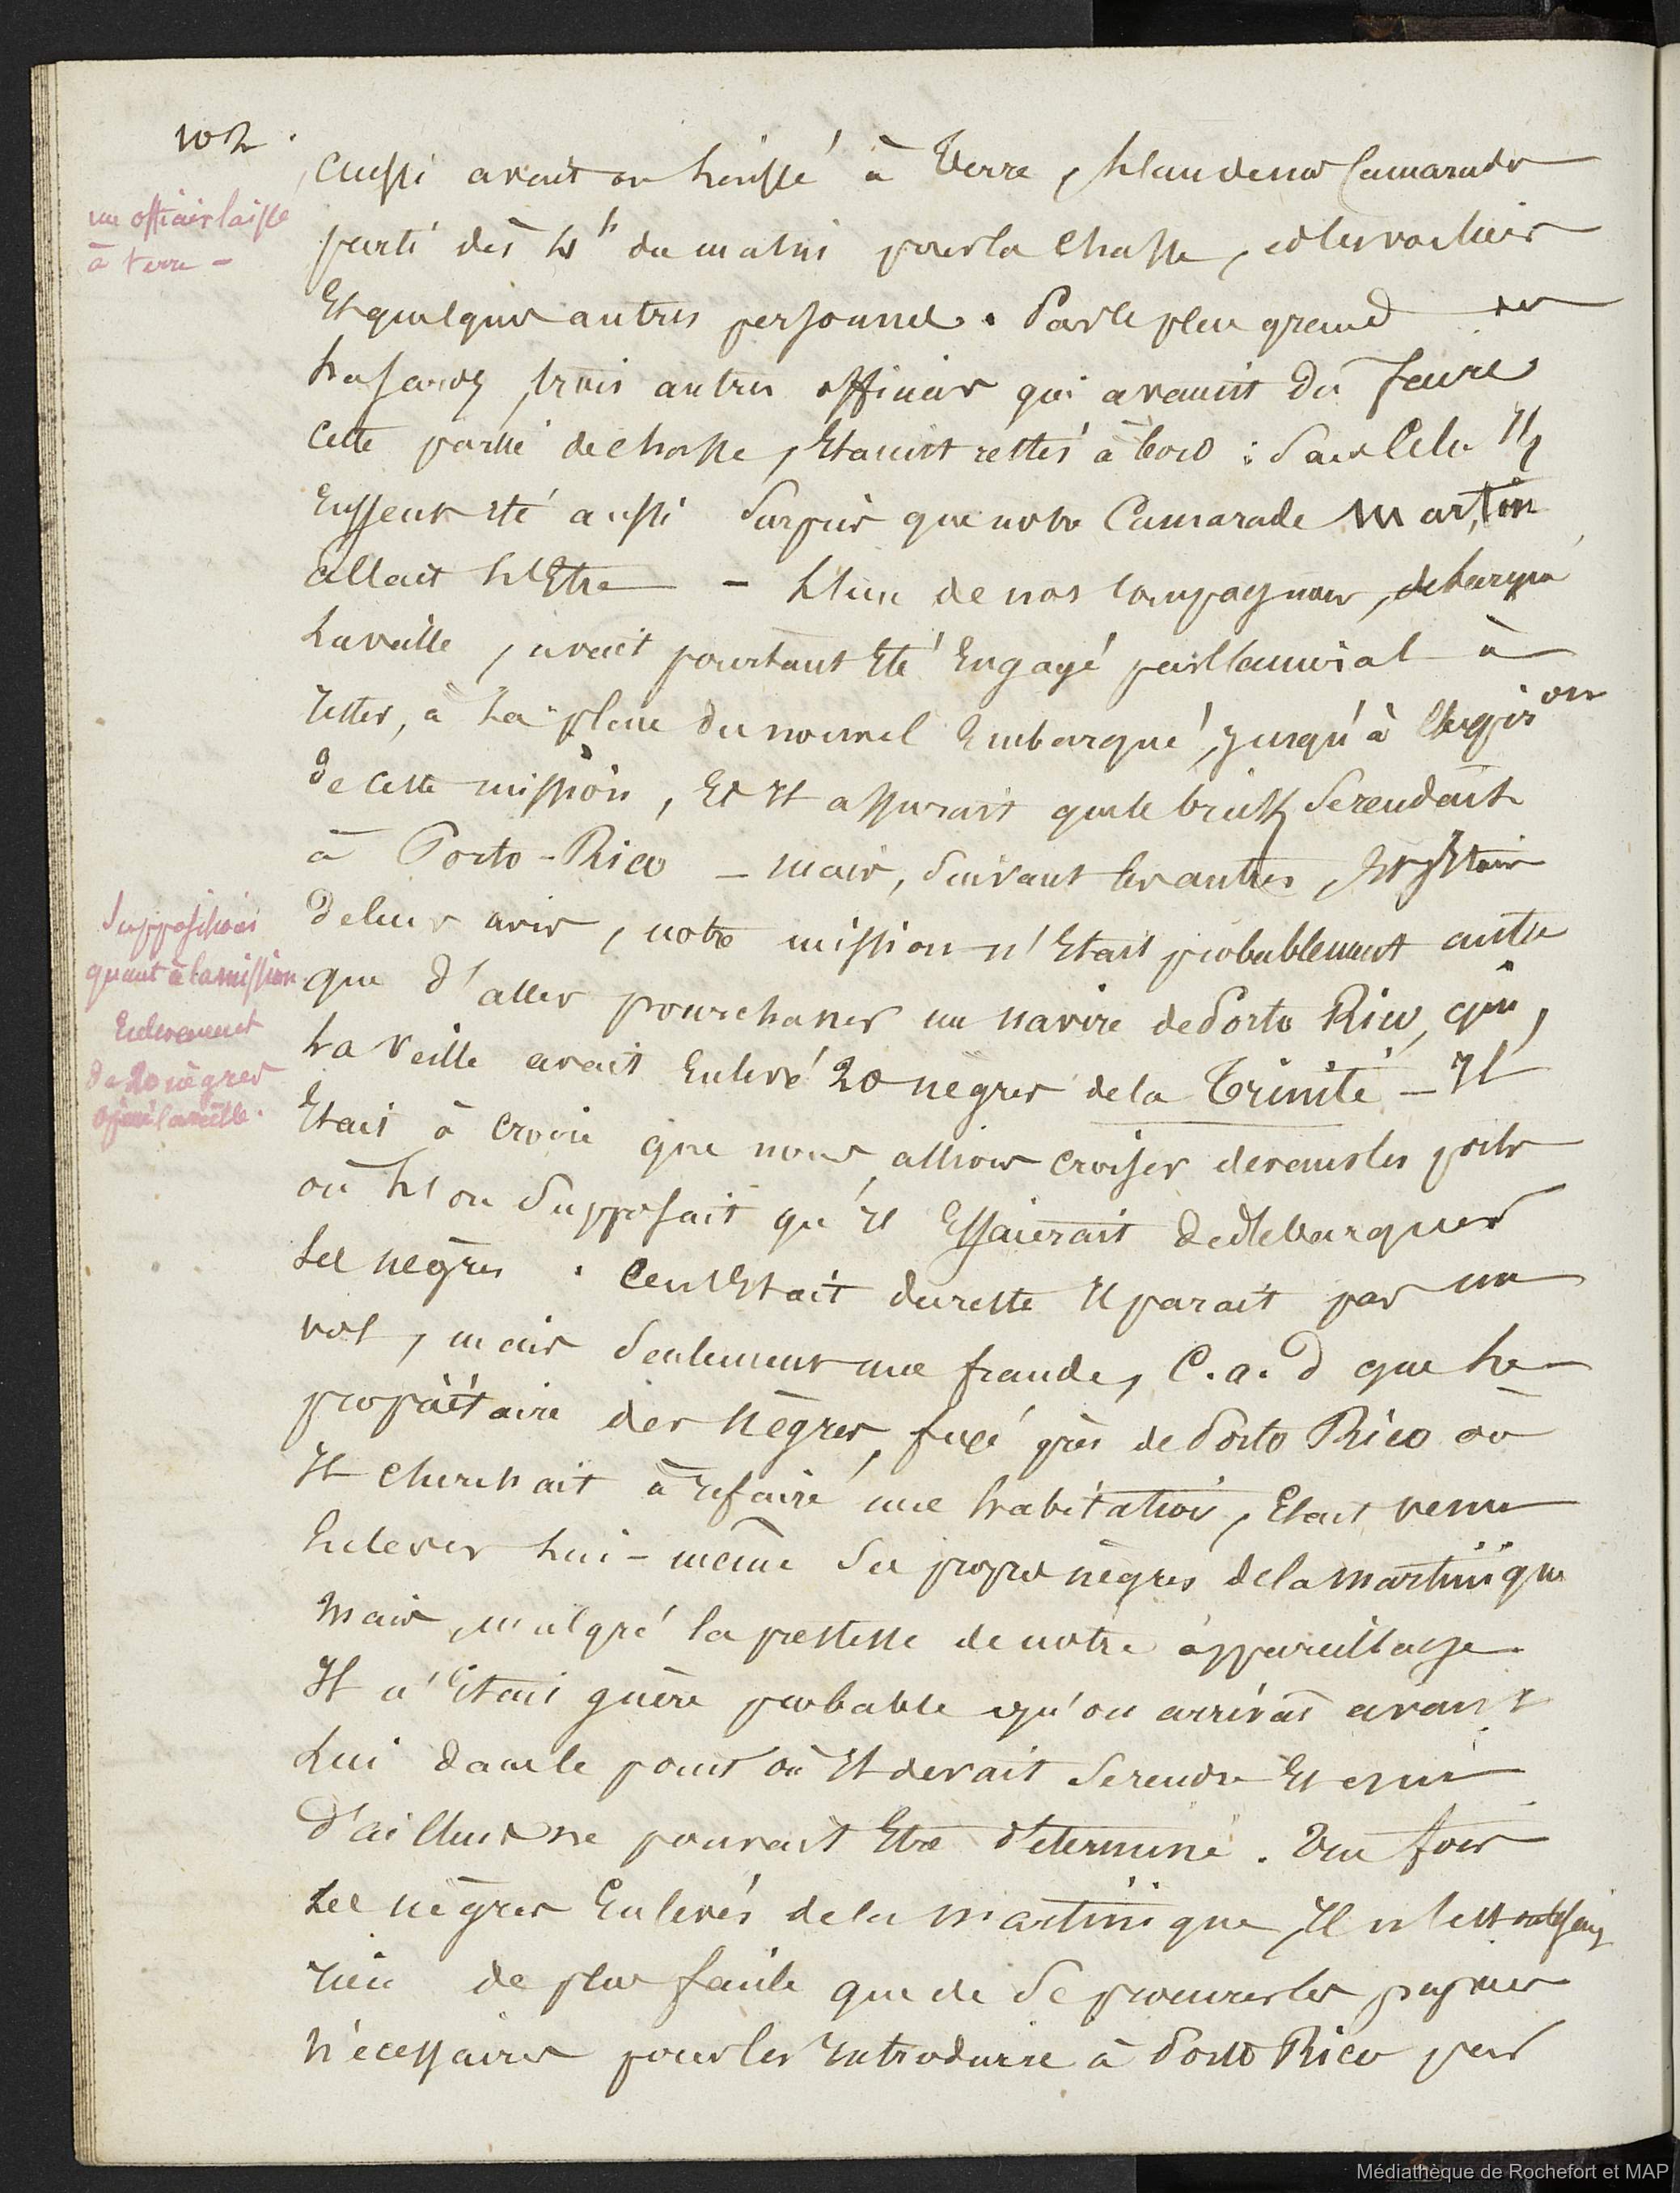 102.
un officier laissé
à terre -
aussi avait on laissé à terre, l'un de nos Camarades
parti dès 4h du matin pour la chasse, et les vachers
Et quelques autres personnes. Par le plus grand des
hasards, trois autres officiers qui avaient dû faire
cette partie de chasse, Etaient restés à bord : Sans Cela Ils
Eussent été aussi Surpris que notre Camarade Martin
allait l'Etre - L'un de nos Compagnons, débarqué
la veille, avait pourtant Eté Engagé par l'amiral à
rester, à la place du nouvel Embarqué, jusqu'à l'expiron
de cette mission, Et Il assurait que le brick Se rendait
à Porto-Rico - mais, Suivant les autres,
de leurs avis, notre mission n'Etait probablement autre
que d'aller pourchasser un navire de Porto Rico, qui,
la veille avait Enlevé 20 nègres de la Trinité - Il
Supposition
quant à la mission
Enlèvement
de 20 nègres
Etait à croire que nous allions croiser devant les ports
où l'on Supposait qu'Il Essaierait de débarquer
les nègres. Ce n'Etait du reste Il parait pas un
vol, mais Seulement une fraude, C.a.d que le
propriétaire des Nègres, fixé près de Porto Rico où
Il cherchait à refaire une habitation, Etait venu
Enlever lui-même Ses propres nègres de la Martinique
Mais, malgré la prestesse de notre appareillage
Il n'Etait guère probable qu'on arrivât avant
lui dans le point où Il devait Se rendre Et qui
d'ailleurs ne pouvait Etre déterminé. Une fois
les nègres Enlevés de la Martinique, Il n'est
rien de plus facile que de Se procurer les papiers
nécessaires pour les Introduire à Porto Rico par
Médiathèque de Rochefort et MAP